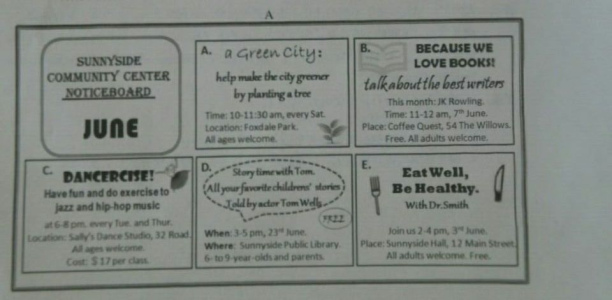 A
SUNNYSIDE
COMMUNITY CENTER
NOTICEBOARD
JUNE
A. a Green City:
help make the city greener
by planting a tree
Time: 10-11:30 am, every Sat.
Location: Foxdale Park.
All ages welcome.
B. BECAUSE WE
LOVE BOOKS!
talk about the best writers
This month: JK Rowling.
Time: 11-12 am, 7th June.
Place: Coffee Quest, 54 The Willows.
Free. All adults welcome.
C. DANCERCISE!
Have fun and do exercise to
jazz and hip-hop music
at 6-8 pm, every Tue. and Thur.
Location: Sally's Dance Studio, 32 Road.
All ages welcome.
Cost: $17 per class.
D. Story time with Tom.
All your favorite childrens' stories
Told by actor Tom Wells.
FREE
When: 3-5 pm, 23rd June.
Where: Sunnyside Public Library.
6- to 9-year-olds and parents.
E. Eat Well,
Be Healthy.
With Dr.Smith
Join us 2-4 pm, 3rd June.
Place: Sunnyside Hall, 12 Main Street.
All adults welcome. Free.